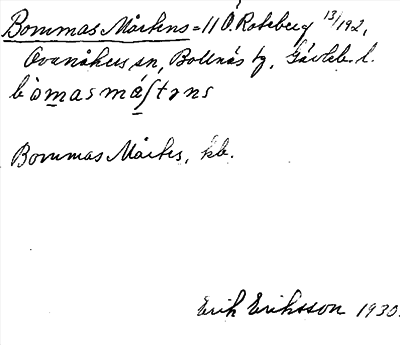 Bommas Mårtens = 11 Ö. Roteberg 13/192,
Ovanåkers sn, Bollnäs tg, Gävleb. l.
bòmasmáʃtəns
Bommas Mårtes, kb.
Erik Eriksson 1930.